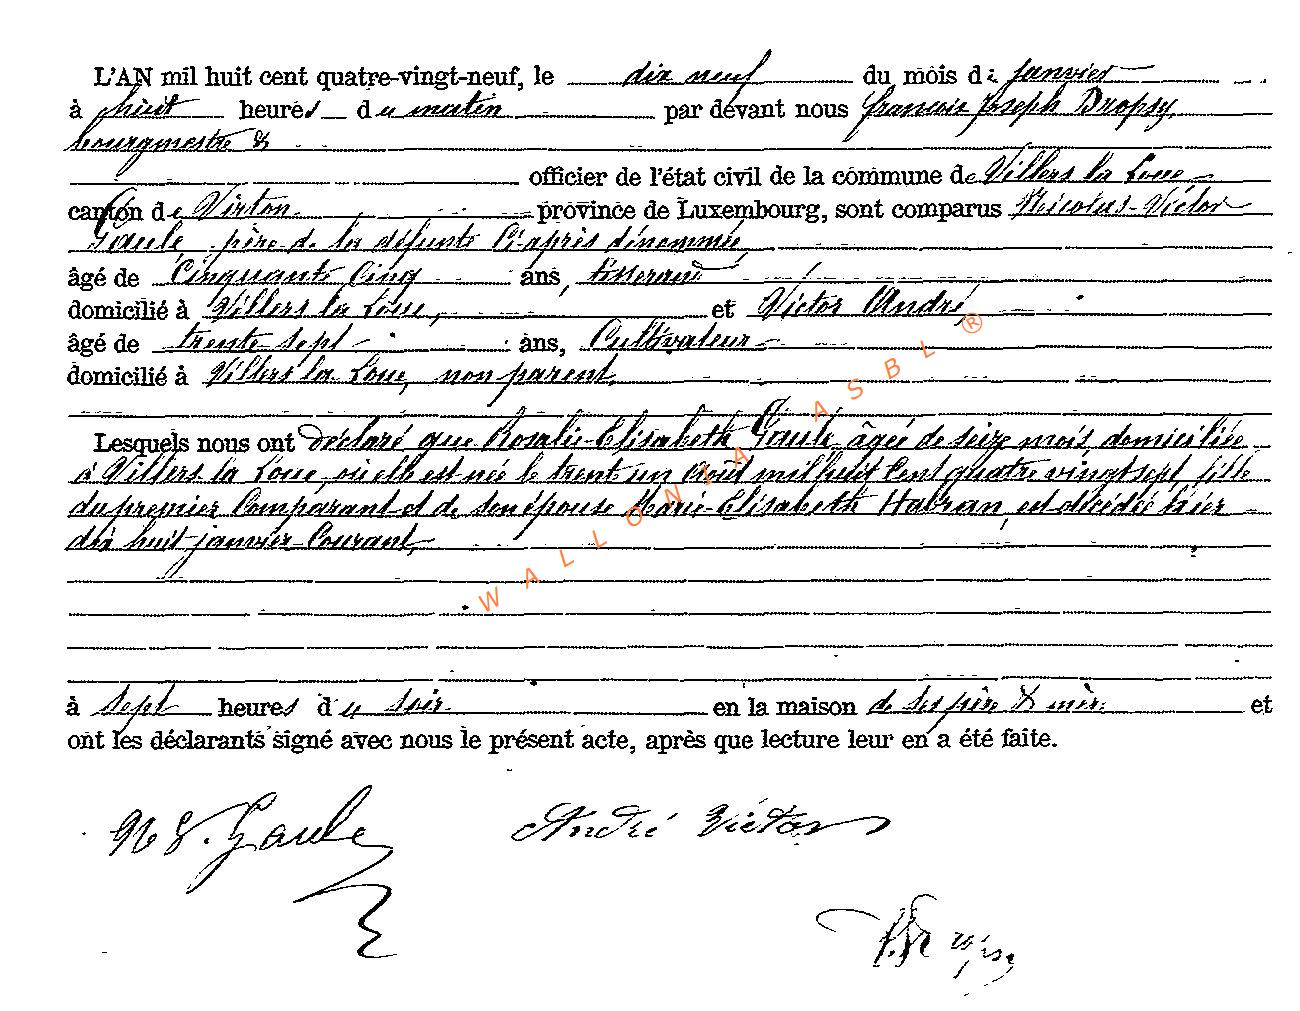 L'AN mil huit cent quatre-vingt-neuf, le dix neuf du mois de janvier
à huit heures du matin par devant nous françois Joseph Dropsy,
bourgmestre &
officier de l'état civil de la commune de Villers la Loue
canton de Virton province de Luxembourg, sont comparus Nicolas-Victor
Gaule, père de la défunte Ci-après dénommée,
âgé de Cinquante Cinq ans, tisserand
domicilié à Villers la Loue, et Victor André,
âgé de trente sept ans, Cultivateur
domicilié à Villers la Loue, non parent,
Lesquels nous ont déclaré que Rosalie-Elisabeth Gaule âgée de seize mois, domiciliée
à Villers la Loue, où elle est née le trente un août mil huit Cent quatre vingt sept, fille
du premier Comparant et de son épouse Marie-Elisabeth Habran, est décédée hier
dix huit janvier Courant,
à sept heures du soir en la maison de ses père & mère et
ont les déclarants signé avec nous le présent acte, après que lecture leur en a été faite.
N V. Gaule André Victor
F. Dropsy
WALLONIA ASBL ®